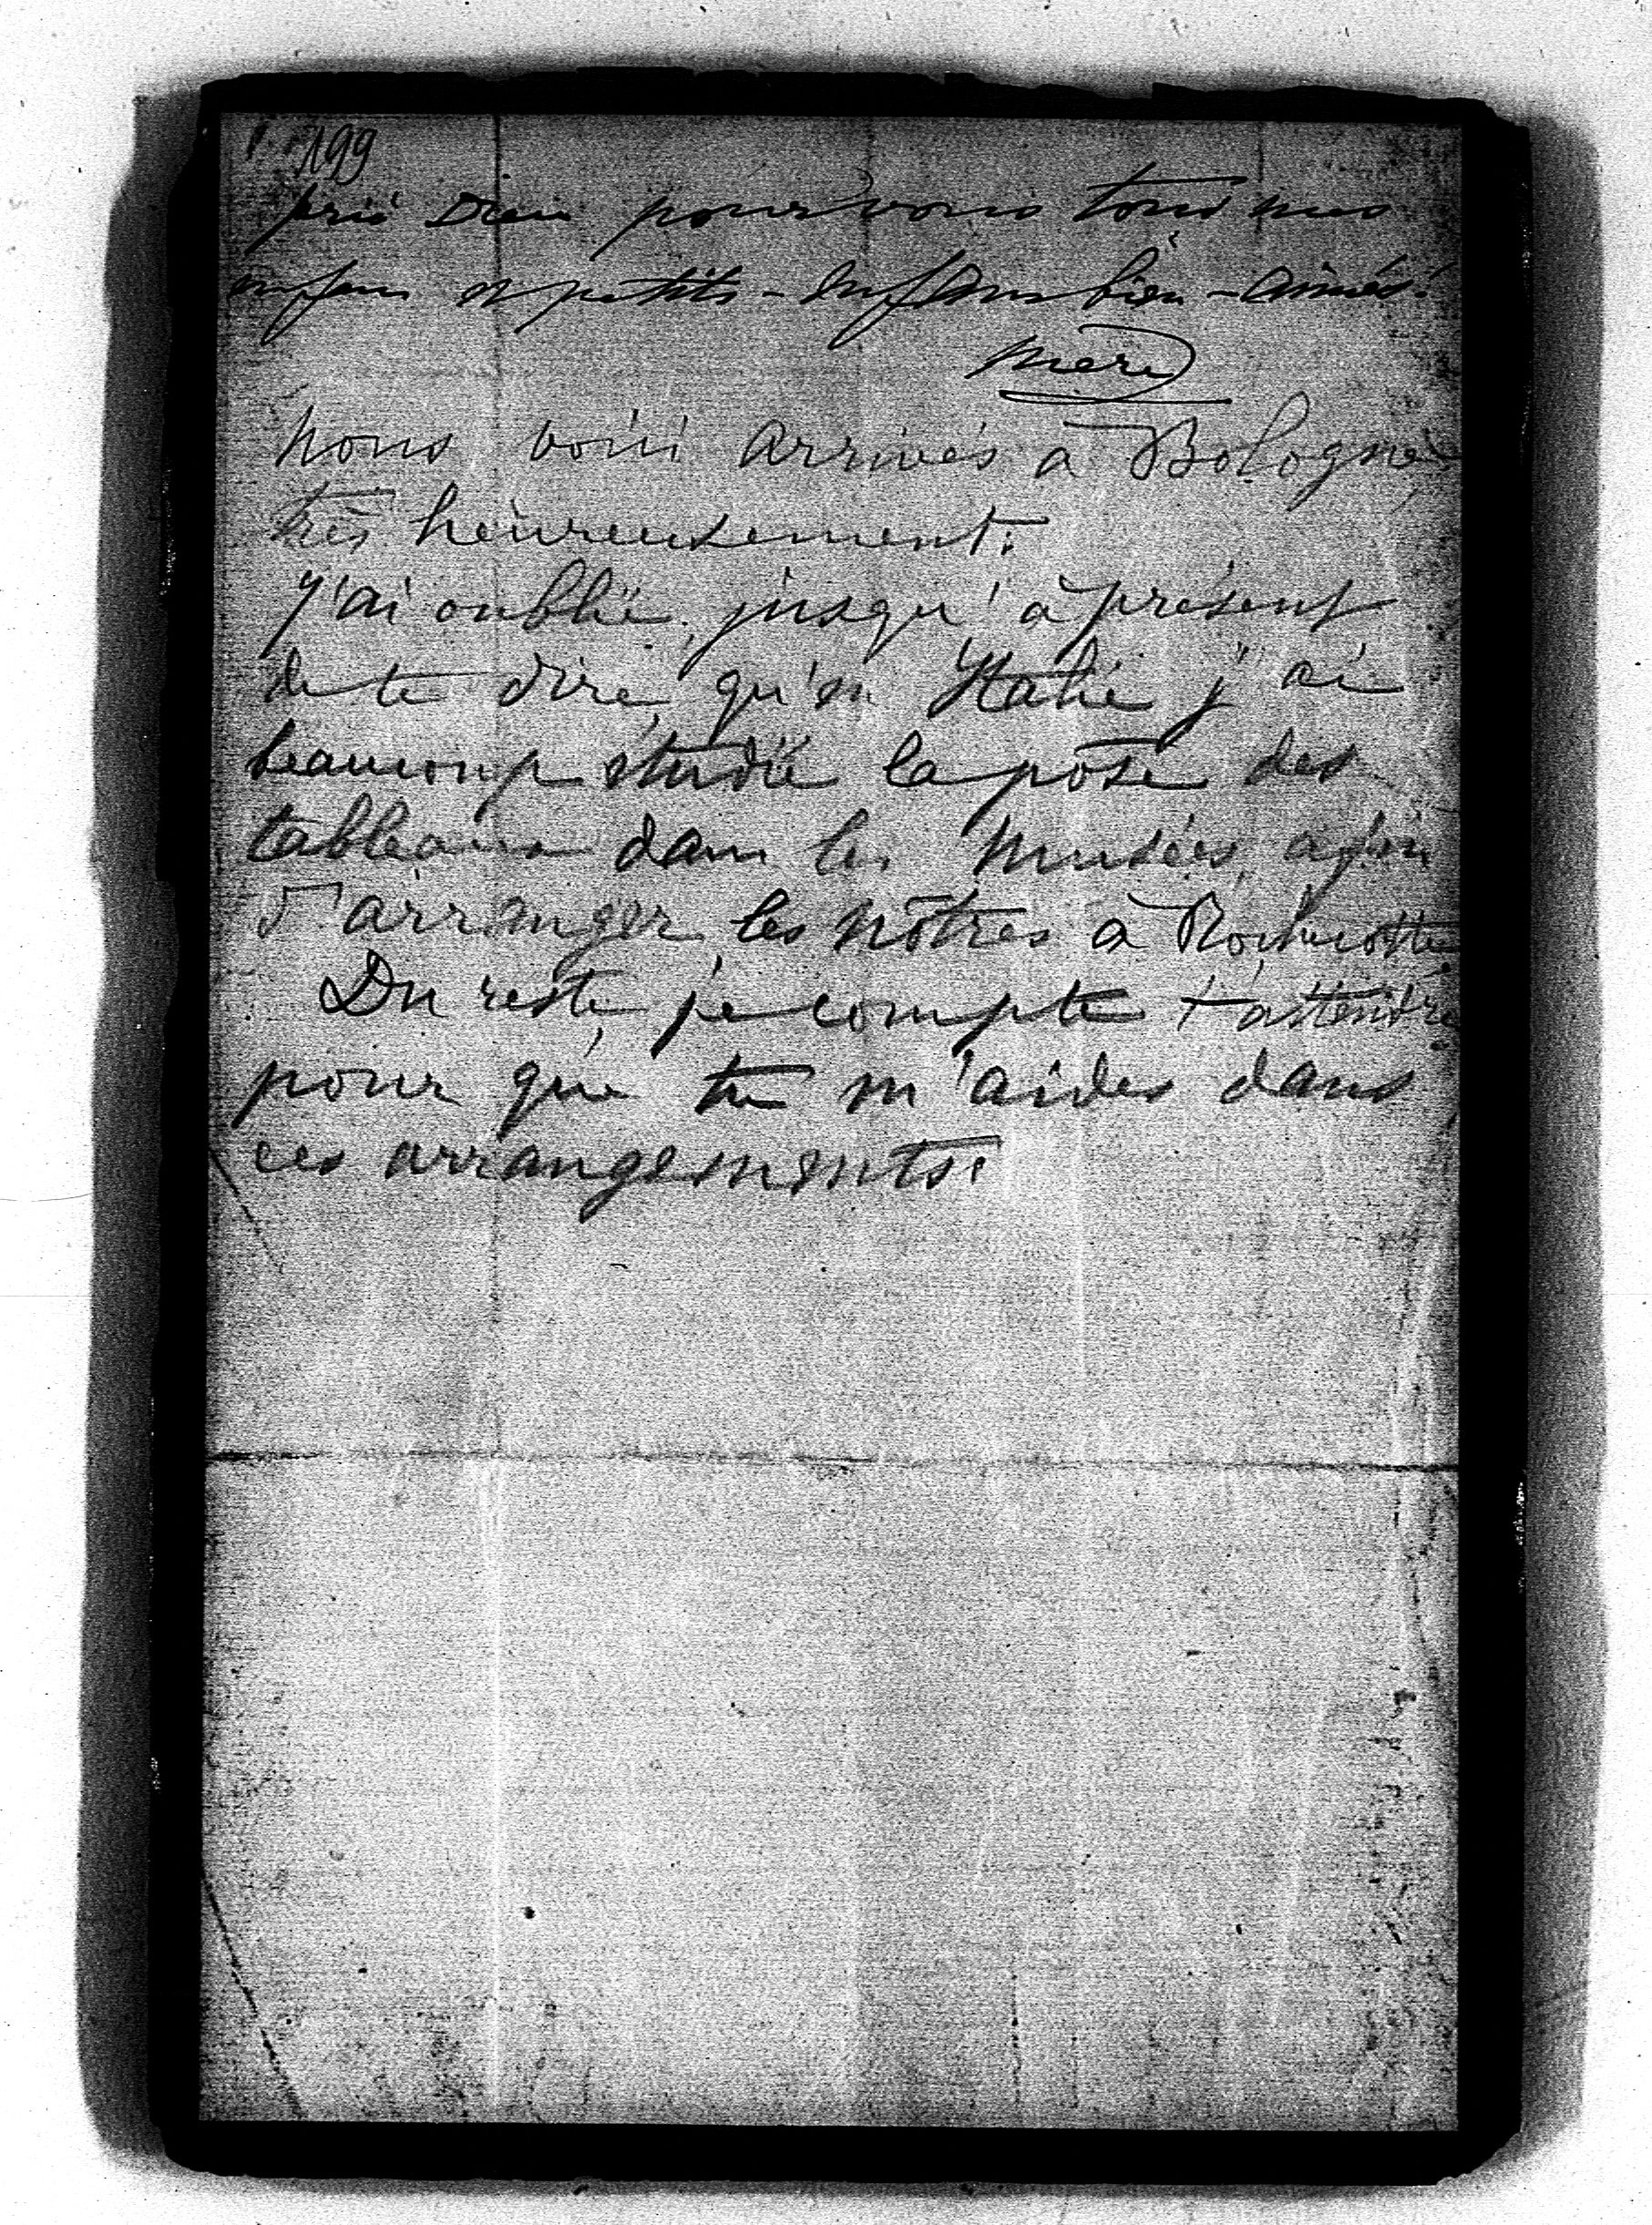 199
prié Dieu pour vous tous mes
enfans et petits-enfans bien-aimés!
mère
nous voici arrivés à Bologne,
très heureusement.
J'ai oublié, jusqu'à présent
de te dire, qu'en Italie j'ai
beaucoup étudié la pose des
tableaux dans les musées, afin
d'arranger les nôtres à Rochecotte.
Du reste, je compte t'attendre
pour que tu m'aides dans
ces arrangements.